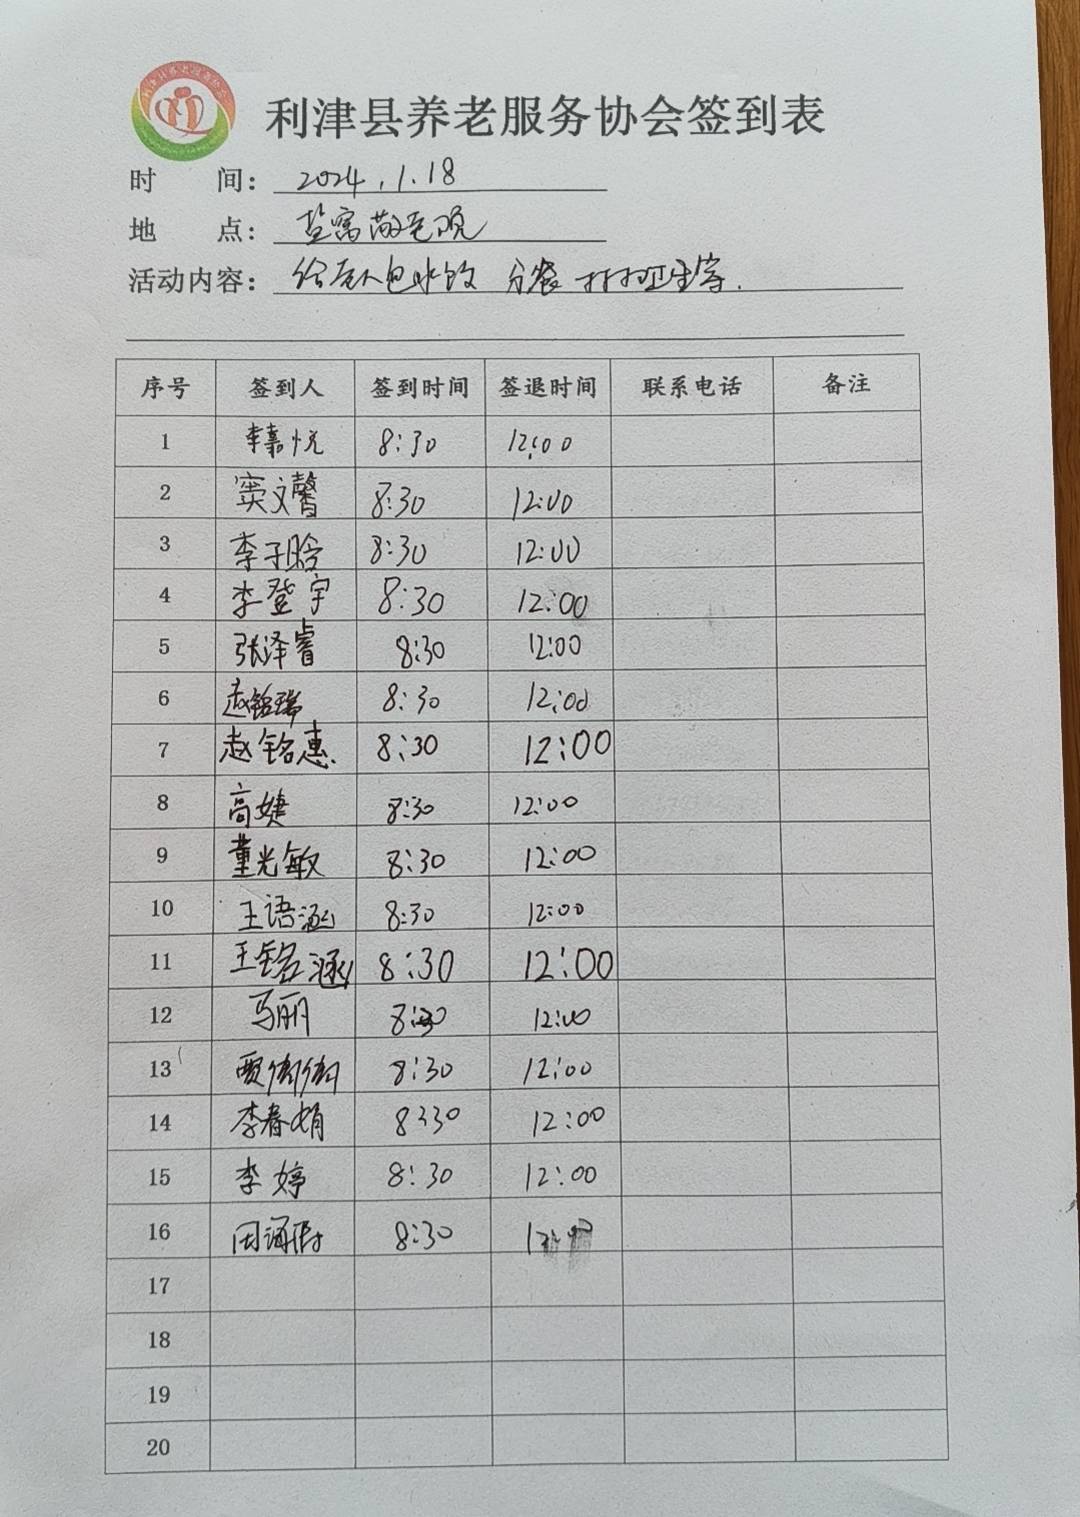 利津县养老服务协会签到表
时 间: 2024.1.18
地 点: 盐窝敬老院
活动内容: 给老人包水饺 分装 打扫卫生等.
序号 签到人 签到时间 签退时间 联系电话 备注
1 李嘉悦 8:30 12:00
2 窦文馨 8:30 12:00
3 李子晗 8:30 12:00
4 李登宇 8:30 12:00
5 张泽睿 8:30 12:00
6 赵铭瑞 8:30 12:00
7 赵铭惠 8:30 12:00
8 高婕 8:30 12:00
9 董光敏 8:30 12:00
10 王语涵 8:30 12:00
11 王铭涵 8:30 12:00
12 马丽 8:30 12:00
13 贾倩倩 8:30 12:00
14 李春娟 8:30 12:00
15 李婷 8:30 12:00
16 8:30
17
18
19
20